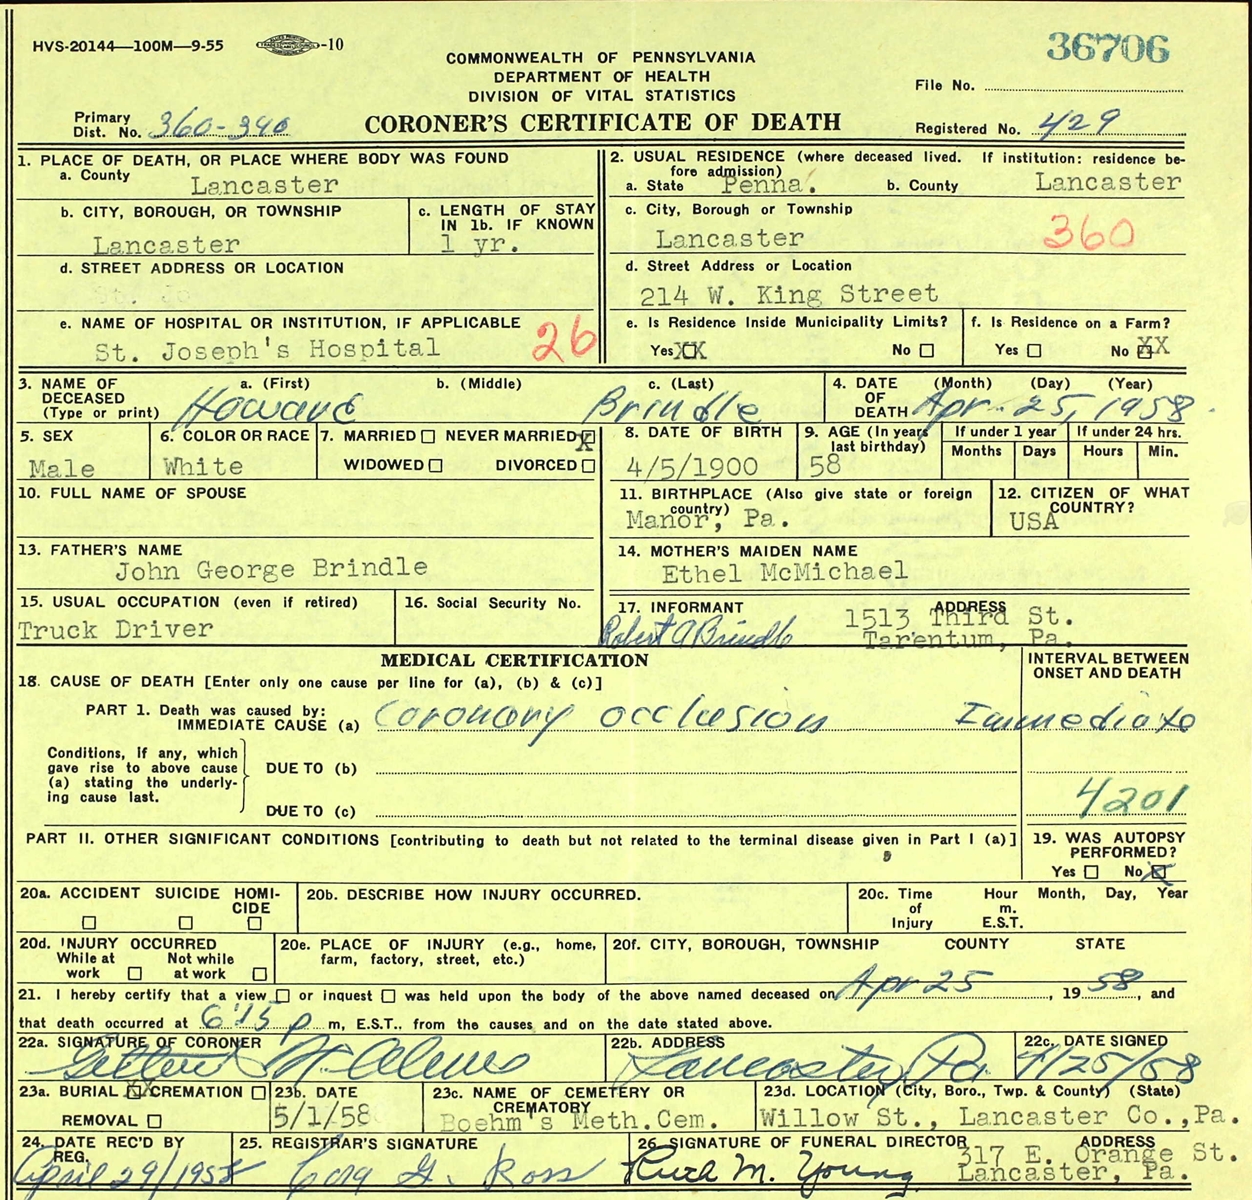 HVS-20144—100M—9-55 -10
36706
COMMONWEALTH OF PENNSYLVANIA
DEPARTMENT OF HEALTH
DIVISION OF VITAL STATISTICS
File No.
Primary
Dist. No. 360-390
CORONER'S CERTIFICATE OF DEATH
Registered No. 429
1. PLACE OF DEATH, OR PLACE WHERE BODY WAS FOUND
a. County Lancaster
b. CITY, BOROUGH, OR TOWNSHIP
Lancaster
c. LENGTH OF STAY
IN 1b. IF KNOWN
1 yr.
d. STREET ADDRESS OR LOCATION
St. Jo
e. NAME OF HOSPITAL OR INSTITUTION, IF APPLICABLE
St. Joseph's Hospital
26
2. USUAL RESIDENCE (where deceased lived. If institution: residence be-
fore admission)
a. State Penna. b. County Lancaster
c. City, Borough or Township
Lancaster 360
d. Street Address or Location
214 W. King Street
e. Is Residence Inside Municipality Limits?
Yes XX No
f. Is Residence on a Farm?
Yes No XX
3. NAME OF
DECEASED
(Type or print)
a. (First) b. (Middle) c. (Last)
Howard Brindle
4. DATE
OF
DEATH
(Month) (Day) (Year)
Apr. 25, 1958.
5. SEX
Male
6. COLOR OR RACE
White
7. MARRIED NEVER MARRIED X
WIDOWED DIVORCED
8. DATE OF BIRTH
4/5/1900
9. AGE (In years
last birthday)
58
If under 1 year
Months Days
If under 24 hrs.
Hours Min.
10. FULL NAME OF SPOUSE
11. BIRTHPLACE (Also give state or foreign
country)
Manor, Pa.
12. CITIZEN OF WHAT
COUNTRY?
USA
13. FATHER'S NAME
John George Brindle
14. MOTHER'S MAIDEN NAME
Ethel McMichael
15. USUAL OCCUPATION (even if retired)
Truck Driver
16. Social Security No.
17. INFORMANT
Robert A Brindle
ADDRESS
1513 Third St.
Tarentum, Pa.
MEDICAL CERTIFICATION
INTERVAL BETWEEN
ONSET AND DEATH
18. CAUSE OF DEATH [Enter only one cause per line for (a), (b) & (c)]
PART 1. Death was caused by:
IMMEDIATE CAUSE (a) Coronary occlusion Immediate
Conditions, if any, which
gave rise to above cause
(a) stating the underly-
ing cause last.
DUE TO (b)
DUE TO (c)
4201
PART II. OTHER SIGNIFICANT CONDITIONS [contributing to death but not related to the terminal disease given in Part I (a)]
19. WAS AUTOPSY
PERFORMED?
Yes No X
20a. ACCIDENT SUICIDE HOMI-
CIDE
20b. DESCRIBE HOW INJURY OCCURRED.
20c. Time
of
Injury
Hour
m.
E.S.T.
Month, Day, Year
20d. INJURY OCCURRED
While at
work
Not while
at work
20e. PLACE OF INJURY (e.g., home,
farm, factory, street, etc.)
20f. CITY, BOROUGH, TOWNSHIP COUNTY STATE
21. I hereby certify that a view or inquest was held upon the body of the above named deceased on Apr 25, 1958, and
that death occurred at 6:15 p m, E.S.T., from the causes and on the date stated above.
22a. SIGNATURE OF CORONER
22b. ADDRESS
Lancaster, Pa
22c. DATE SIGNED
4/25/58
23a. BURIAL XX CREMATION
REMOVAL
23b. DATE
5/1/58
23c. NAME OF CEMETERY OR
CREMATORY
Boehm's Meth.Cem.
23d. LOCATION (City, Boro., Twp. & County) (State)
Willow St., Lancaster Co.,Pa.
24. DATE REC'D BY
REG.
April 29/1958
25. REGISTRAR'S SIGNATURE
Cora G. Ross
26. SIGNATURE OF FUNERAL DIRECTOR
M. Young
ADDRESS
317 E. Orange St.
Lancaster, Pa.